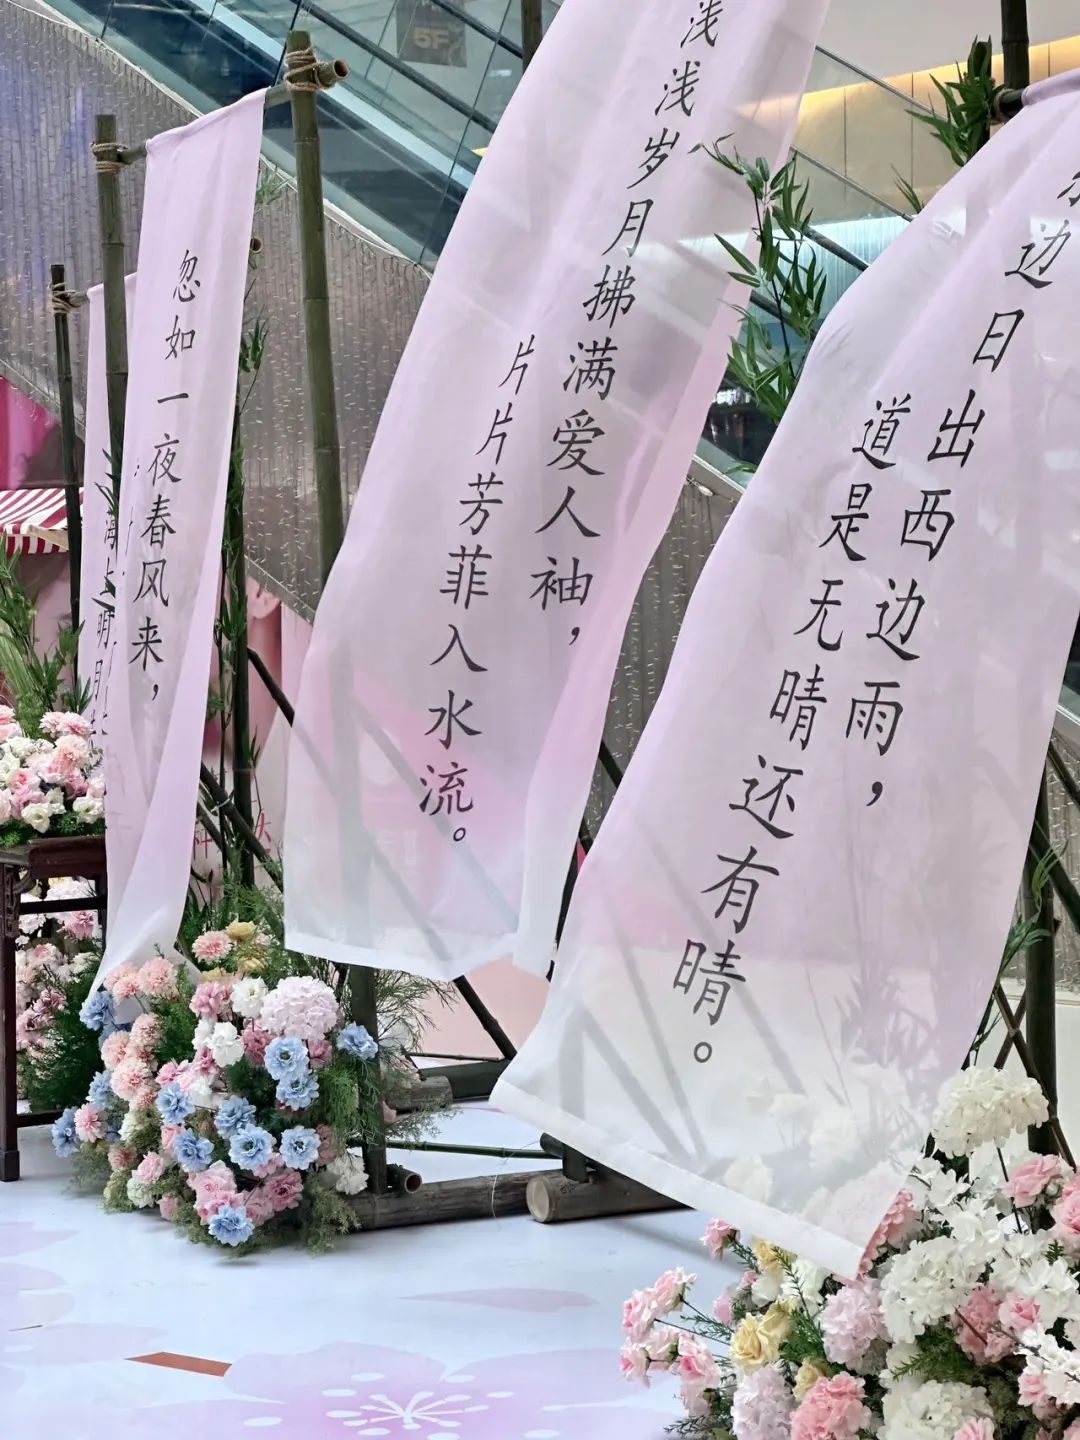 5F
边日出西边雨，
道是无晴还有晴。
浅浅岁月拂满爱人袖，
片片芳菲入水流。
忽如一夜春风来，
海上明月